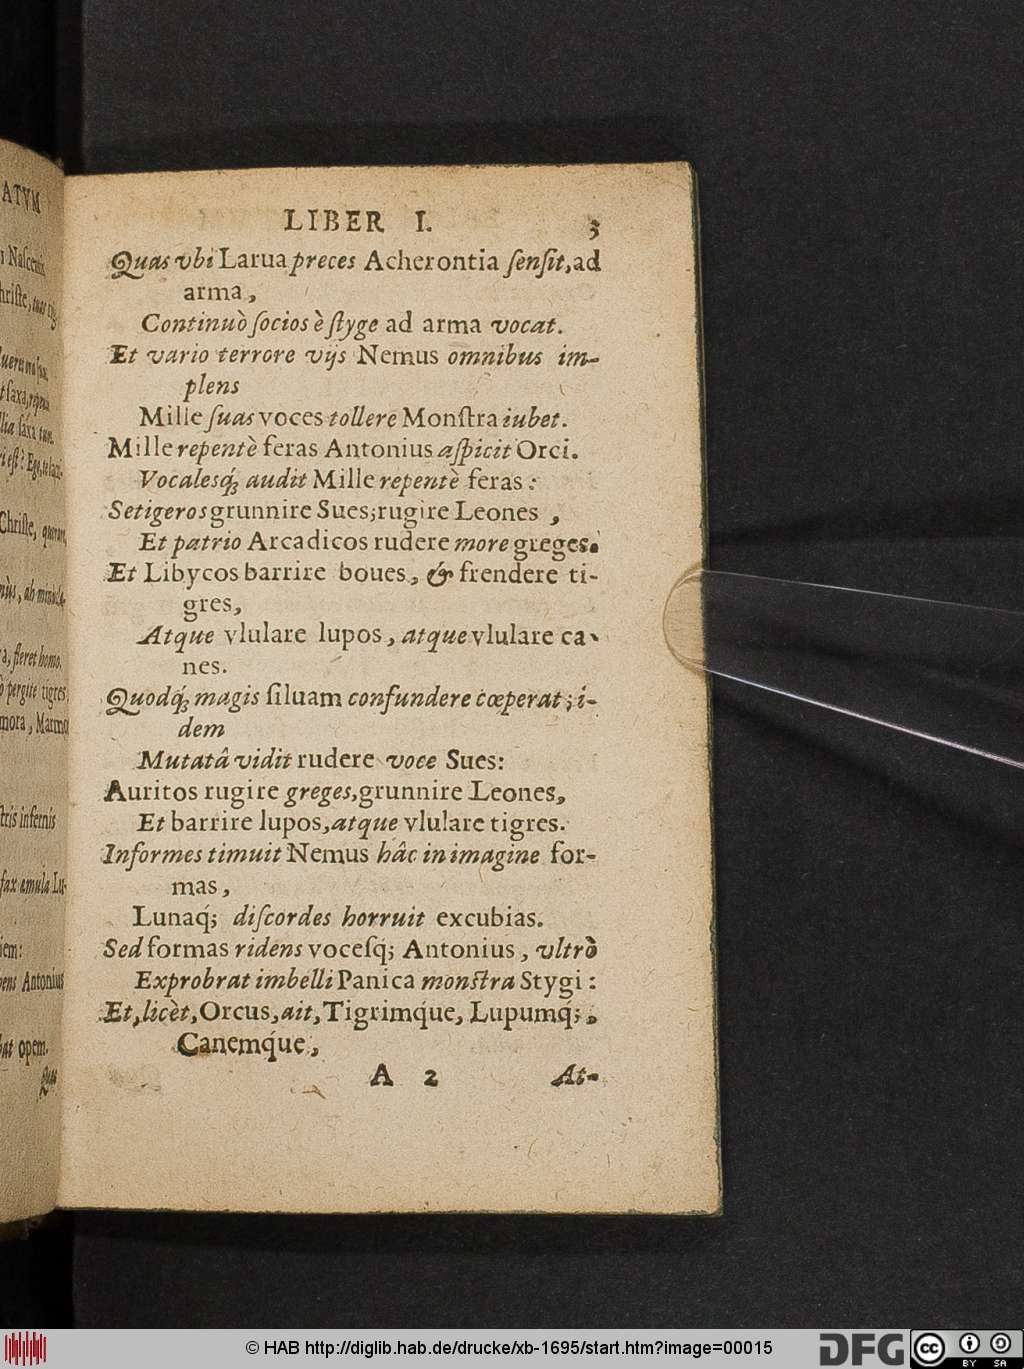 ATVM
LIBER I. 3
Quas vbi Larua preces Acherontia ſenſit, ad
arma,
Continuò ſocios è ſtyge ad arma vocat.
Et vario terrore vijs Nemus omnibus im-
plens
Mille ſuas voces tollere Monſtra iubet.
Mille repentè feras Antonius aſpicit Orci.
Vocalesq́; audit Mille repentè feras:
Setigeros grunnire Sues; rugire Leones,
Et patrio Arcadicos rudere more greges.
Et Libycos barrire boues, & frendere ti-
gres,
Atque vlulare lupos, atque vlulare ca-
nes.
Quodq́; magis ſiluam confundere cœperat; i-
dem
Mutatâ vidit rudere voce Sues:
Auritos rugire greges, grunnire Leones,
Et barrire lupos, atque vlulare tigres.
Informes timuit Nemus hâc in imagine for-
mas,
Lunaq́; diſcordes horruit excubias.
Sed formas ridens voceſq́; Antonius, vltrò
Exprobrat imbelli Panica monstra Stygi:
Et, licèt, Orcus, ait, Tigrimq́ue, Lupumq́;,
Canemq́ue,
A 2 At-
© HAB http://diglib.hab.de/drucke/xb-1695/start.htm?image=00015
DFG cc BY SA